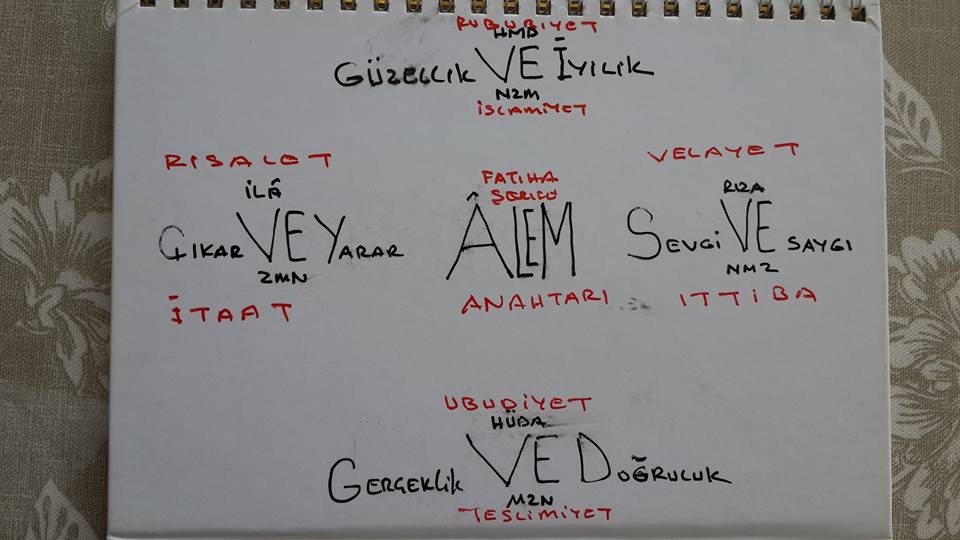 RUBUBİYET
HMB
GÜZELLİK VE İYİLİK
NZM
İSLAMİYET
RISALET
İLÂ
ÇIKAR VE YARAR
ZMN
İTAAT
FATIHA
ÂLEM
ANAHTARI
VELAYET
RIZA
SEVGİ VE SAYGI
NMZ
ITTIBA
UBUDİYET
HÜDA
GERÇEKLİK VE DOĞRULUK
MZN
TESLİMİYET